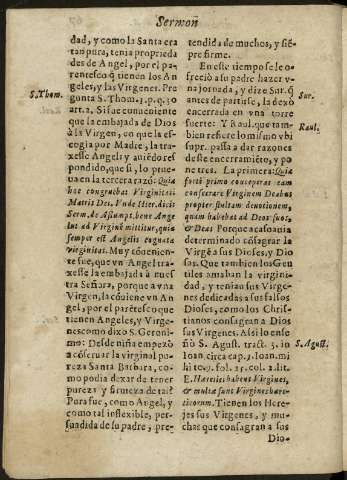 Sermon
dad, y como la Santa era
tan pura, tenia propriedades
des de Angel, por el pa-
rentesco q̃ tienen los An
geles, y las Virgenes. Pre
gunta S. Thom. 1. p. q. 30
S. Thom.
art. 2. Si fue conueniente
que la embajada de Dios
à la Virgen, en que la es-
cogia por Madre, la tra-
xesse Angel: y auiẽdo res
pondido, que sì, lo prue-
ua en la tercera razõ: Quia
hoc congruebat Virginitati
Matris Dei. Vnde Hier. dicit
Serm. de Assumpt. bene Ange
lus ad Virginẽ mittitur, quia
semper est Angelis cognata
virginitas. Muy cõuenien-
te fue, que vn Angel tra-
xesse la embajada à nues-
tra Señora, porque a vna
Virgen, la cõuiene vn An
gel, por el parẽtesco que
tienen Angeles, y Virge-
nes como dixo S. Geroni-
mo: Desde niña empezò
a cõseruar la virginal pu-
reza Santa Barbara, co-
mo podia dexar de tener
pureza y firmeza de tal?
Pura fue, como Angel, y
como tal inflexible, per-
suadida de su padre, pre-
tendida de muchos, y siẽ-
pre firme.
En este tiempo se le o-
freciò a su padre hazer v-
na jornada, y dize Sur. q̃
Sur.
antes de partirse, la dexò
encerrada en vna torre
fuerte: Y Raul. que tam-
Raul.
bien refiere lo mismo vbi
supr. passa a dar razones
deste encerramiẽto, y po
ne tres. La primera: Quia
fortè primo conceperat eam
consecrare Virginem Deabus
propter stultam deuotionem,
quam habebat ad Deos suos,
& Deas Porque acaso auia
determinado cõsagrar la
Virgẽ a sus Dioses, y Dio
sas. Que tambien los Gen
tiles amaban la virgini-
dad, y tenian sus Virge-
nes dedicadas a sus falsos
Dioses, como los Chris-
tianos consagran a Dios
sus Virgenes. Assi lo ense
ñò S. Agust. tract. 3. in
S. Agust.
Ioan. circa cap. 1. Ioan. mi
hi to. 9. fol. 25. col. 2. lit.
E. Haretici habent Virgines,
& multæ sunt Virgines hære-
ticorum. Tienen los Here-
jes sus Virgenes, y mu-
chas que consagran a sus
Dio-